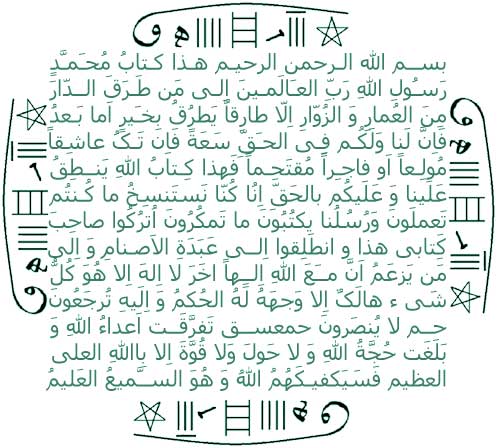 بســم الله الـرحمن الرحيـم هـذا كـتابُ مُحَـمَّدٍ
رَسُـولِ اللهِ رَبِّ العـالَمـينَ الِـى مَن طـرَقَ الــدّارَ
مِنَ العُمارِ وَ الزُوّارِ اِلّا طارِقاً يَطرُقُ بِخَـيرٍ اَما بَـعدُ
فَاِنَّ لَنا وَلَكُـم فِـى الحَـقِّ سَعَةً فَاِن تَـكُ عاشِـقاً
مُولِـعاً اَو فاجِـراً مُقتَحِـماً فَهذا كِـتابُ اللهِ يَنــطِقُ
عَلَينا وَ عَلَيكُم بالحَقِّ اِنّا كُنّا نَستَنسِخُ ما كُـنتُم
تَعمَلونَ وَرُسُلُنا يَكتُبُونَ ما تَمكُرُونَ اُترُكُوا صاحِبَ
كتابى هذا و انطَلِقوا اِلــى عَبَدَةِ الاَصنامِ وَ الى
مَن يَزعَمُ اَنَّ مــعَ اللهِ اِلــهاً آخَرَ لا اِلهَ اِلا هُوَ كُلُّ
شَىء هالَكٌ اِلا وَجهَهُ لَهُ الحُكمُ وَ اِلَيهِ تُرجَعُونَ
حــم لا يُنصَرونَ حمعســق تَفرَّقَــت اَعداءُ اللهِ وَ
بَلَغَت حُجَّةُ اللهِ وَ لا حَولَ وَلا قُوَّةَ اِلا بِااللهِ العلى
العظيمِ فَسَيَكفيـكَهُمُ اللهُ وَ هُوَ الســَّميعُ العَليمُ